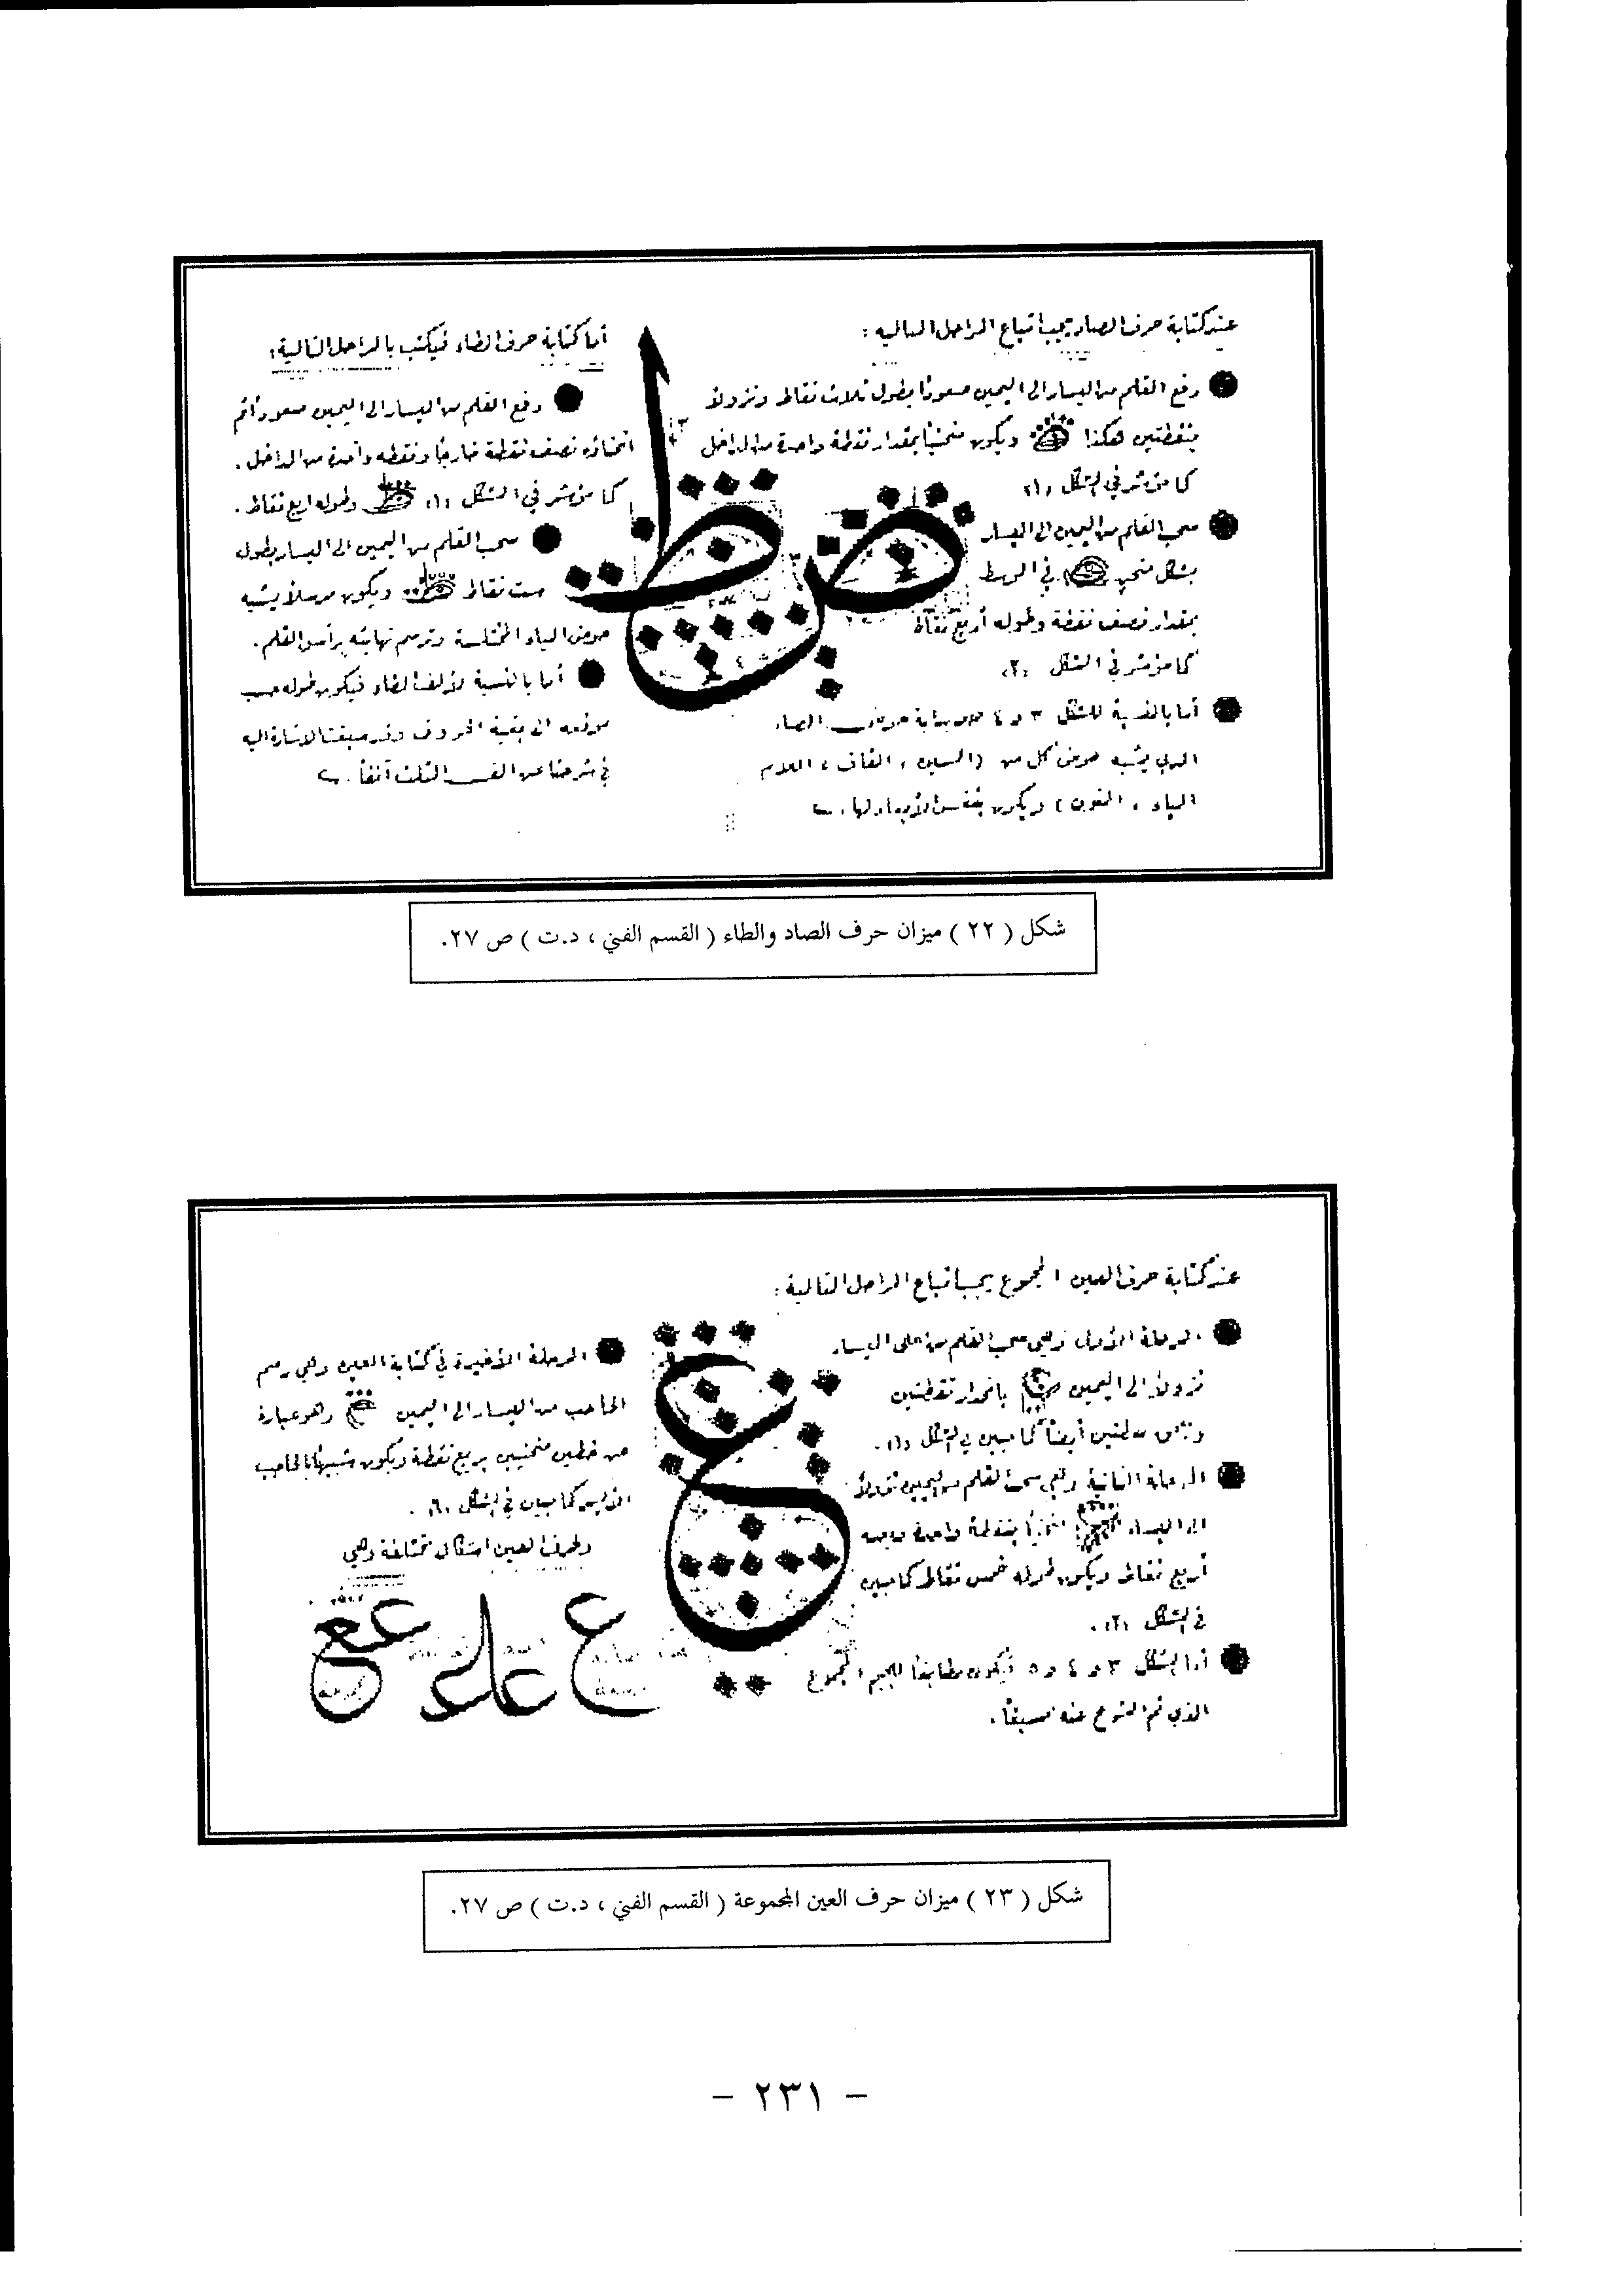 عند كتابة حرف الصاد يجب اتباع المراحل التالية :
دفع القلم من اليسار الى اليمين صعوداً بطول ثلاث نقاط ونزولاً
بنقطتين هكذا ويكون منحنياً بمقدار نقطة واحدة من الداخل
كما مؤشر في الشكل (١)
سحب القلم من اليمين الى اليسار
بشكل منحني في الوسط
بمقدار نصف نقطة وطوله أربع نقاط
كما مؤشر في الشكل (٢)
أما بالنسبة للشكل ٣ و ٤ حوض الصاد
الذي يشبه حوض كل من (السين ، القاف ، اللام
الياء ، النون) ويكون بنفس
أما كتابة حرف الطاء فيكتب بالمراحل التالية :
دفع القلم من اليسار الى اليمين صعوداً ثم
انحناؤه نصف نقطة خارجاً ونقطه واحدة من الداخل .
كما مؤشر في الشكل (١) وطوله اربع نقاط .
سحب القلم من اليمين الى اليسار بطول
ست نقاط ويكون مرسلاً يشبه
حوض الباء المختلسة وترسم نهايته برأس القلم .
أما بالنسبة لألف الطاء فيكون طوله حسب
موقعه الى بقية الحروف وقد سبقت الاشارة اليه
في شرحنا عن الف الثلث آنفاً .
شكل ( ٢٢ ) ميزان حرف الصاد والطاء ( القسم الفني ، د.ت ) ص ٢٧.
عند كتابة حرف العين المجموع يجب اتباع المراحل التالية :
المرحلة الأولى وهي سحب القلم من اعلى اليسار
نزولاً الى اليمين بانحدار نقطتين
نقطتين أيضاً كما مبين في الشكل (١) .
المرحلة الثانية وهي سحب القلم من اليمين نزولاً
الى اليسار بنقطة واحدة
أربع نقاط ويكون طوله خمس نقاط كما مبين
في الشكل (٢) .
أما الشكل ٣ و ٤ و ٥ فيكون مطابقاً للجيم المجموع
الذي تم الشرح عنه مسبقاً .
المرحلة الأخيرة في كتابة العين وهي رسم
الحاجب من اليسار الى اليمين وهو عبارة
عن خطين منحنيين بربع نقطة ويكون شبيهاً بالحاجب
كما مبين في الشكل (٦) .
ولحرف العين اشكال مختلفة وهي
شكل ( ٢٣ ) ميزان حرف العين المجموعة ( القسم الفني ، د.ت ) ص ٢٧.
- ٢٣١ -